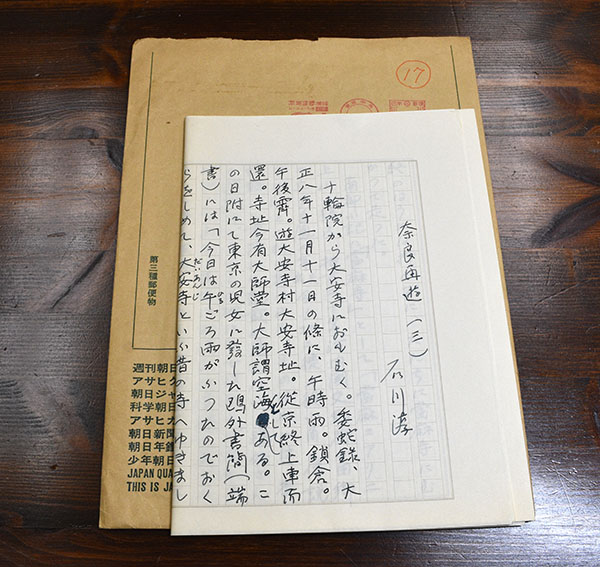 17
奈良再遊(三)
石川淳
十輪院から大安寺におもむく。委蛇録、大
正八年十一月十一日の條に、午時雨。鎖倉。
午後霽。遊大安寺村大安寺址。從京終上車而
還。寺址今有大師堂。大師謂空海としてある。こ
の日附にて東京の児女に發した鷗外書簡(端
書)には「今日は午ごろ雨がふつたのでおく
ひる
らをしめて、大安寺といふ昔の寺へゆきまし
だいあんじ
第三種郵便物
週刊朝日
アサヒ
朝日ジャ
科学朝日
アサヒカ
朝日新聞
朝日年鑑
少年朝日
JAPAN QUA
THIS IS JA